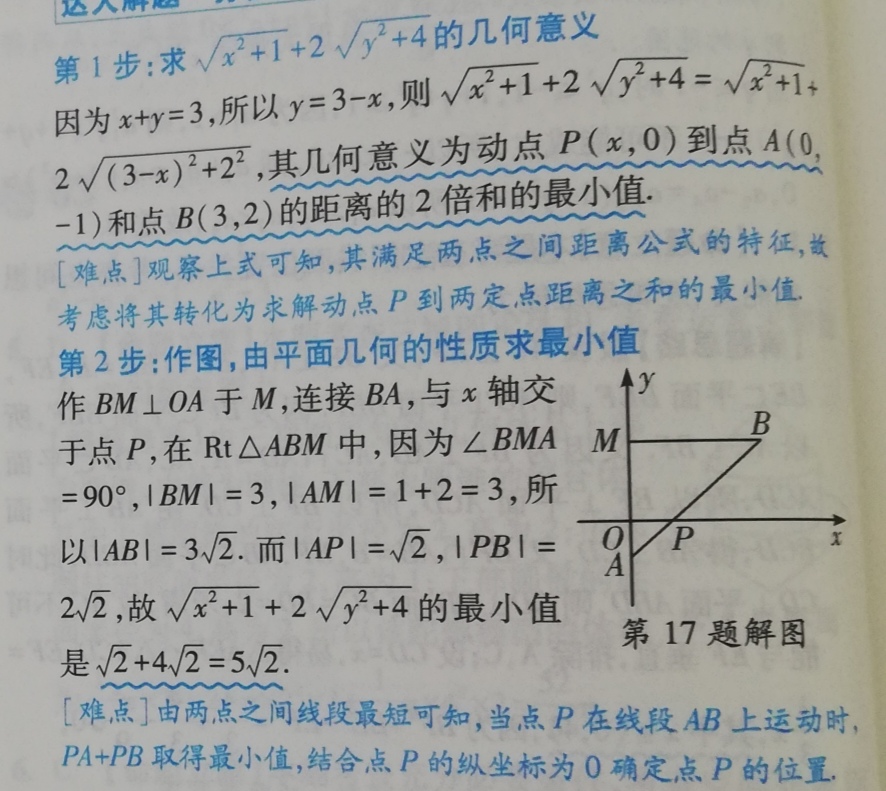 达人解题
第1步:求√(x²+1)+2√(y²+4)的几何意义
因为x+y=3,所以y=3-x,则√(x²+1)+2√(y²+4)=√(x²+1)+
2√((3-x)²+2²),其几何意义为动点P(x,0)到点A(0,
-1)和点B(3,2)的距离的2倍和的最小值.
[难点]观察上式可知,其满足两点之间距离公式的特征,故
考虑将其转化为求解动点P到两定点距离之和的最小值.
第2步:作图,由平面几何的性质求最小值
作BM⊥OA于M,连接BA,与x轴交
于点P,在Rt△ABM中,因为∠BMA
=90°,|BM|=3,|AM|=1+2=3,所
以|AB|=3√2.而|AP|=√2,|PB|=
2√2,故√(x²+1)+2√(y²+4)的最小值
是√2+4√2=5√2.
y
M
B
O
P
x
A
第17题解图
[难点]由两点之间线段最短可知,当点P在线段AB上运动时,
PA+PB取得最小值,结合点P的纵坐标为0确定点P的位置.